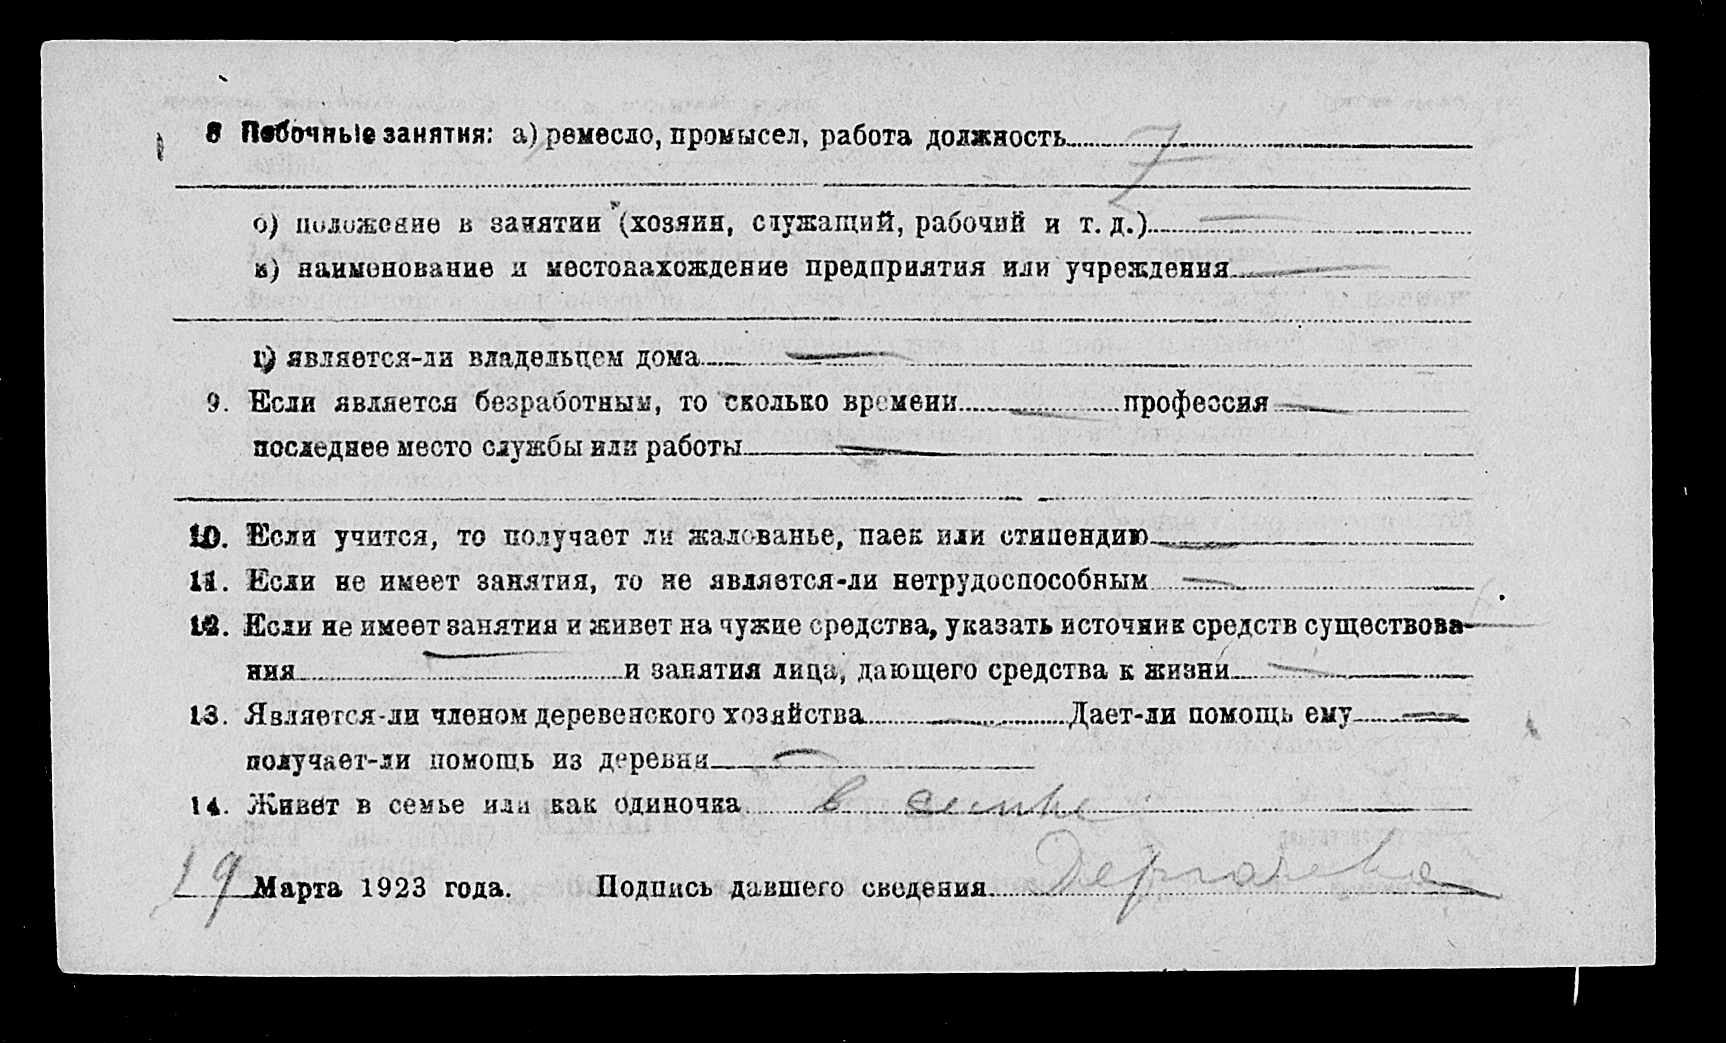 8 Побочные занятия: а) ремесло, промысел, работа должность
б) положение в занятии (хозяин, служащий, рабочий и т. д.)
в) наименование и местонахождение предприятия или учреждения
г) является-ли владельцем дома
9. Если является безработным, то сколько времени профессия
последнее место службы или работы
10. Если учится, то получает ли жалованье, паек или стипендию
11. Если не имеет занятия, то не является-ли нетрудоспособным
12. Если не имеет занятия и живет на чужие средства, указать источник средств существова-
ния и занятия лица, дающего средства к жизни
13. Является-ли членом деревенского хозяйства Дает-ли помощь ему
получает-ли помощь из деревни
14. Живет в семье или как одиночка в семье
19 Марта 1923 года. Подпись давшего сведения Дергачева